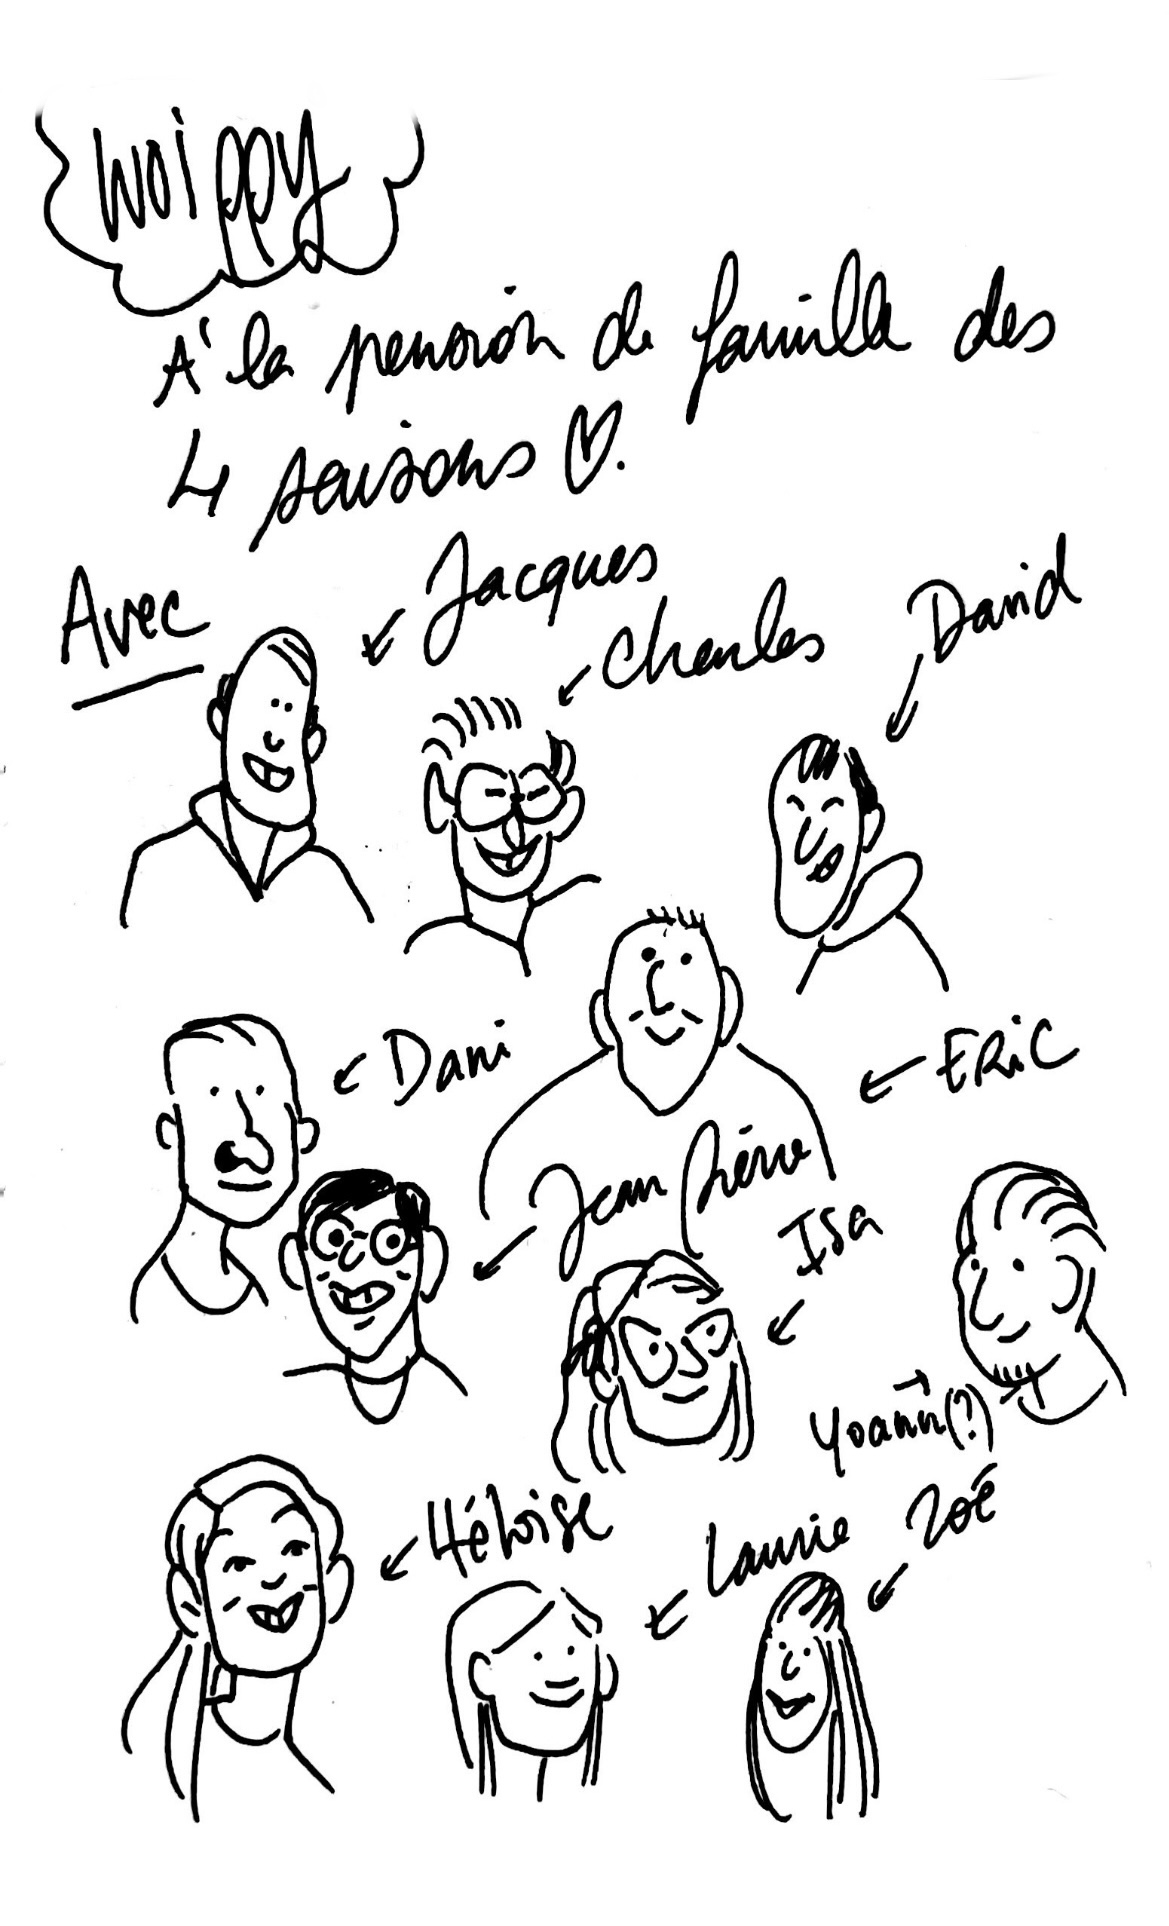 Woippy
À la pension de famille des
4 saisons ♡.
Avec
Jacques
Charles
David
Dani
ERiC
Jean Pierre
Isa
Yoann(?)
Héloïse
Laurie
Zoé